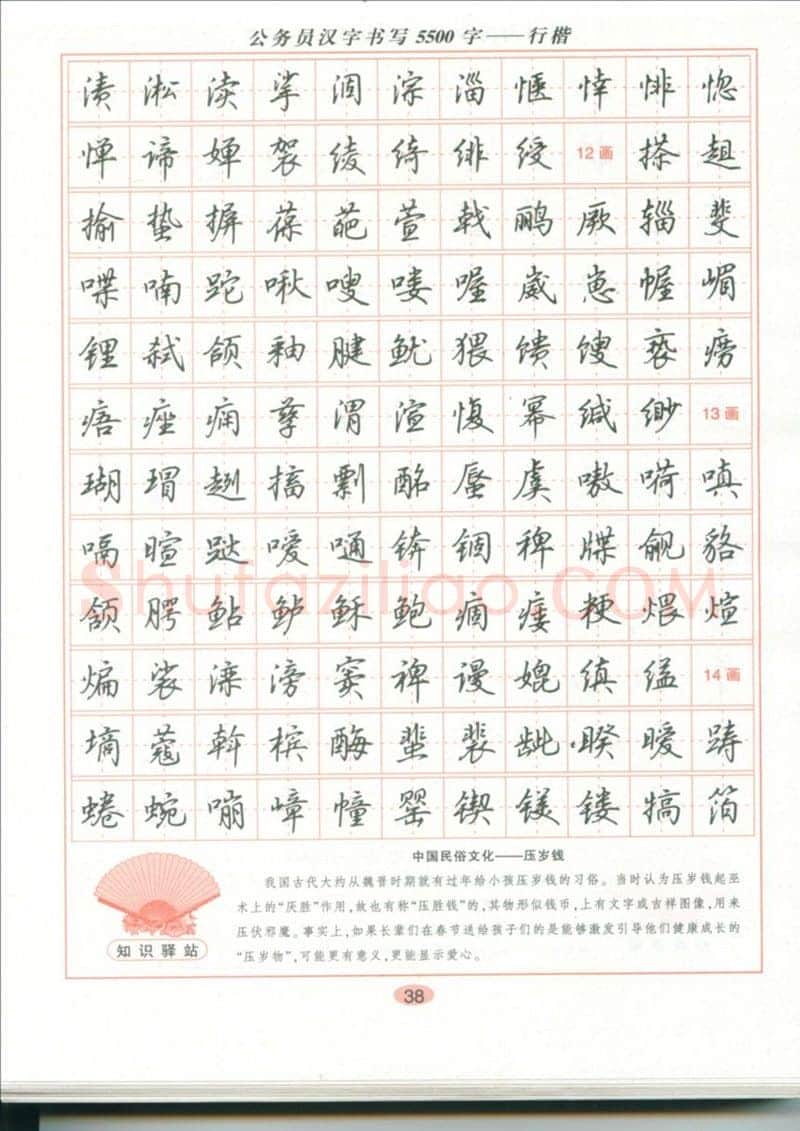 公务员汉字书写5500字——行楷
渍 淞 渎 挲 涸 淙 淄 惬 悻 悱 惚
惮 谛 婵 袈 绫 绮 绯 绶 12画 搽 趄
揄 蛰 摒 葆 葩 萱 戟 鹂 厥 辎 斐
喋 喃 跎 啾 嗖 喽 喔 崴 崽 幄 嵋
锂 弑 颌 釉 腱 鱿 猥 馈 馊 亵 痨
痦 痤 痫 孳 渭 渲 愎 幂 缄 缈 13画
瑚 瑁 趔 搞 剽 酩 蜃 虞 嗷 嗬 嗔
嗝 暄 跶 嗳 嗵 锛 锢 稗 牒 觎 貉
颔 腭 鲇 鲈 稣 鲍 痼 瘘 粳 煨 煊
煸 裟 溧 滂 窦 裨 谩 媲 缜 缢 14画
墒 蔻 斡 槟 酶 蜚 裴 龇 睽 暧 踌
蜷 蜿 嘣 嶂 幢 罂 锲 镁 镂 犒 箔
Shufaziliao.COM
中国民俗文化——压岁钱
我国古代大约从魏晋时期就有过年给小孩压岁钱的习俗。当时认为压岁钱起巫
术上的“厌胜”作用，故也有称“压胜钱”的，其物形似钱币，上有文字或吉祥图像，用来
压伏邪魔。事实上，如果长辈们在春节送给孩子们的是能够激发引导他们健康成长的
“压岁物”，可能更有意义，更能显示爱心。
知识驿站
38